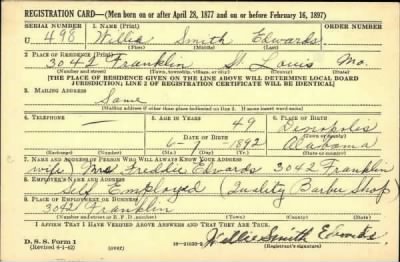 REGISTRATION CARD—(Men born on or after April 28, 1877 and on or before February 16, 1897)
SERIAL NUMBER 1. NAME (Print) ORDER NUMBER
U 498 Willie Smith Edwards
(First) (Middle) (Last)
2. PLACE OF RESIDENCE (Print)
3042 Franklin St. Louis Mo.
(Number and street) (Town, township, village, or city) (County) (State)
[THE PLACE OF RESIDENCE GIVEN ON THE LINE ABOVE WILL DETERMINE LOCAL BOARD
JURISDICTION; LINE 2 OF REGISTRATION CERTIFICATE WILL BE IDENTICAL]
3. MAILING ADDRESS
Same
(Mailing address if other than place indicated on line 2. If same insert word same)
4. TELEPHONE 5. AGE IN YEARS 6. PLACE OF BIRTH
— 49 Demopolis
DATE OF BIRTH (Town or county)
6-1-1892 Alabama
(Exchange) (Number) (Mo.) (Day) (Yr.) (State or country)
7. NAME AND ADDRESS OF PERSON WHO WILL ALWAYS KNOW YOUR ADDRESS
wife Mrs Freddie Edwards 3042 Franklin
8. EMPLOYER'S NAME AND ADDRESS
Self Employed (Quality Barber Shop)
9. PLACE OF EMPLOYMENT OR BUSINESS
3042 Franklin
(Number and street or R. F. D. number) (Town) (County) (State)
I AFFIRM THAT I HAVE VERIFIED ABOVE ANSWERS AND THAT THEY ARE TRUE.
D. S. S. Form 1
(Revised 4-1-42) (over) Willie Smith Edwards
(Registrant's signature)